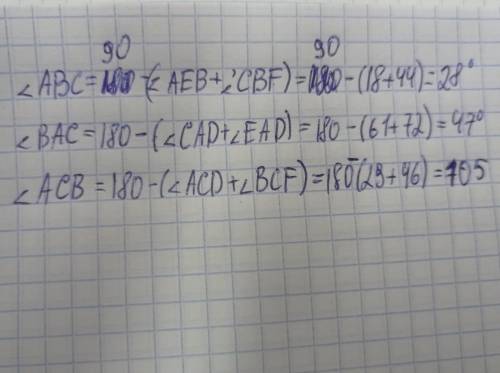 90 90
∠ABC = 180 - (∠AEB + ∠CBF) = 180 - (18+44) = 28°
∠BAC = 180 - (∠CAD + ∠EAD) = 180 - (61+72) = 47°
∠ACB = 180 - (∠ACD + ∠BCF) = 180 - (29+46) = 105